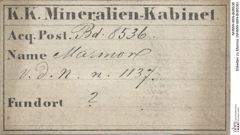 K.K. Mineralien-Kabinet.
Acq. Post. Bd. 8536.
Name Marmor
v. d. N. n. 1137.
Fundort ?